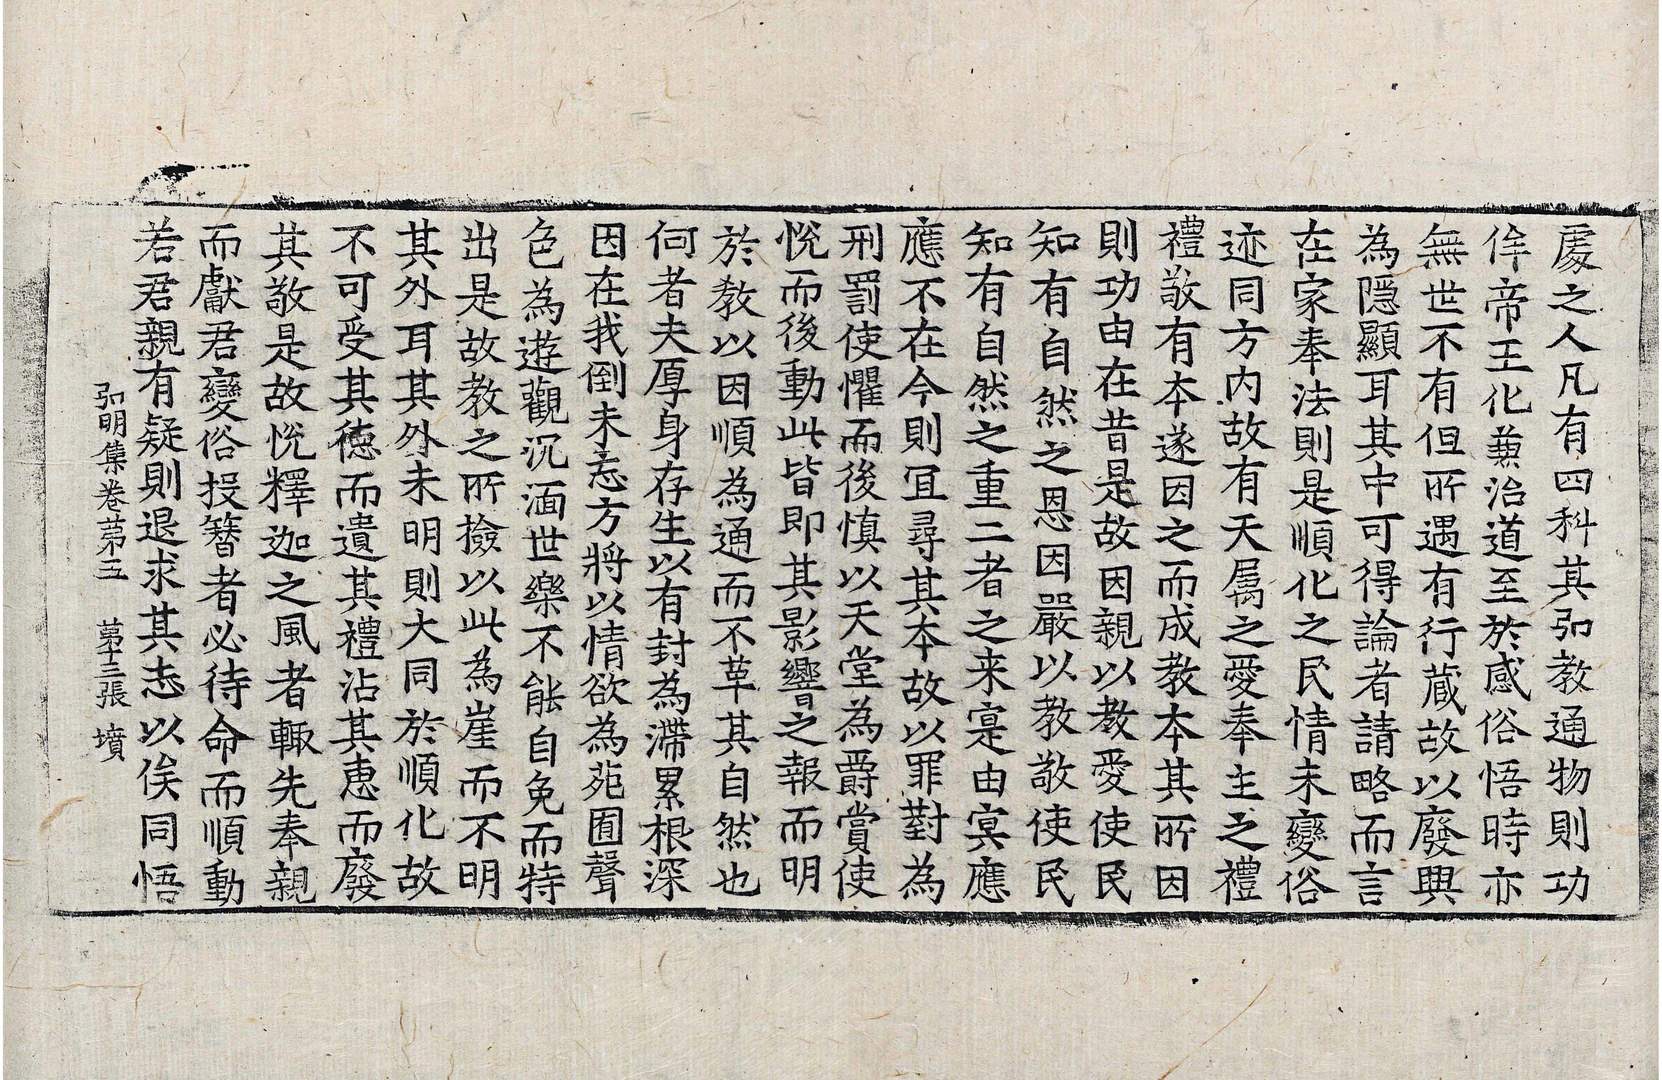 處之人凡有四科其弘教通物則功
侔帝王化兼治道至於感俗悟時亦
無世不有但所遇有行蔵故以廢興
為隱顯耳其中可得論者請略而言
在家奉法則是順化之民情未變俗
迹同方內故有天属之愛奉主之禮
禮敬有本遂因之而成教本其所因
則功由在昔是故因親以教愛使民
知有自然之恩因嚴以教敬使民
知有自然之重二者之来寔由冥應
應不在今則冝尋其本故以罪對為
刑罰使懼而後慎以天堂為爵賞使
恱而後動此皆即其影響之報而明
於教以因順為通而不革其自然也
何者夫厚身存生以有封為滯累根深
因在我倒未忘方將以情欲為苑囿聲
色為遊觀沉湎世樂不能自免而特
出是故教之所撿以此為崖而不明
其外耳其外未明則大同於順化故
不可受其德而遺其禮沾其惠而廢
其敬是故恱釋迦之風者輒先奉親
而獻君變俗投簪者必待命而順動
若君親有疑則退求其志以俟同悟
弘明集卷苐五 苐十三張 墳